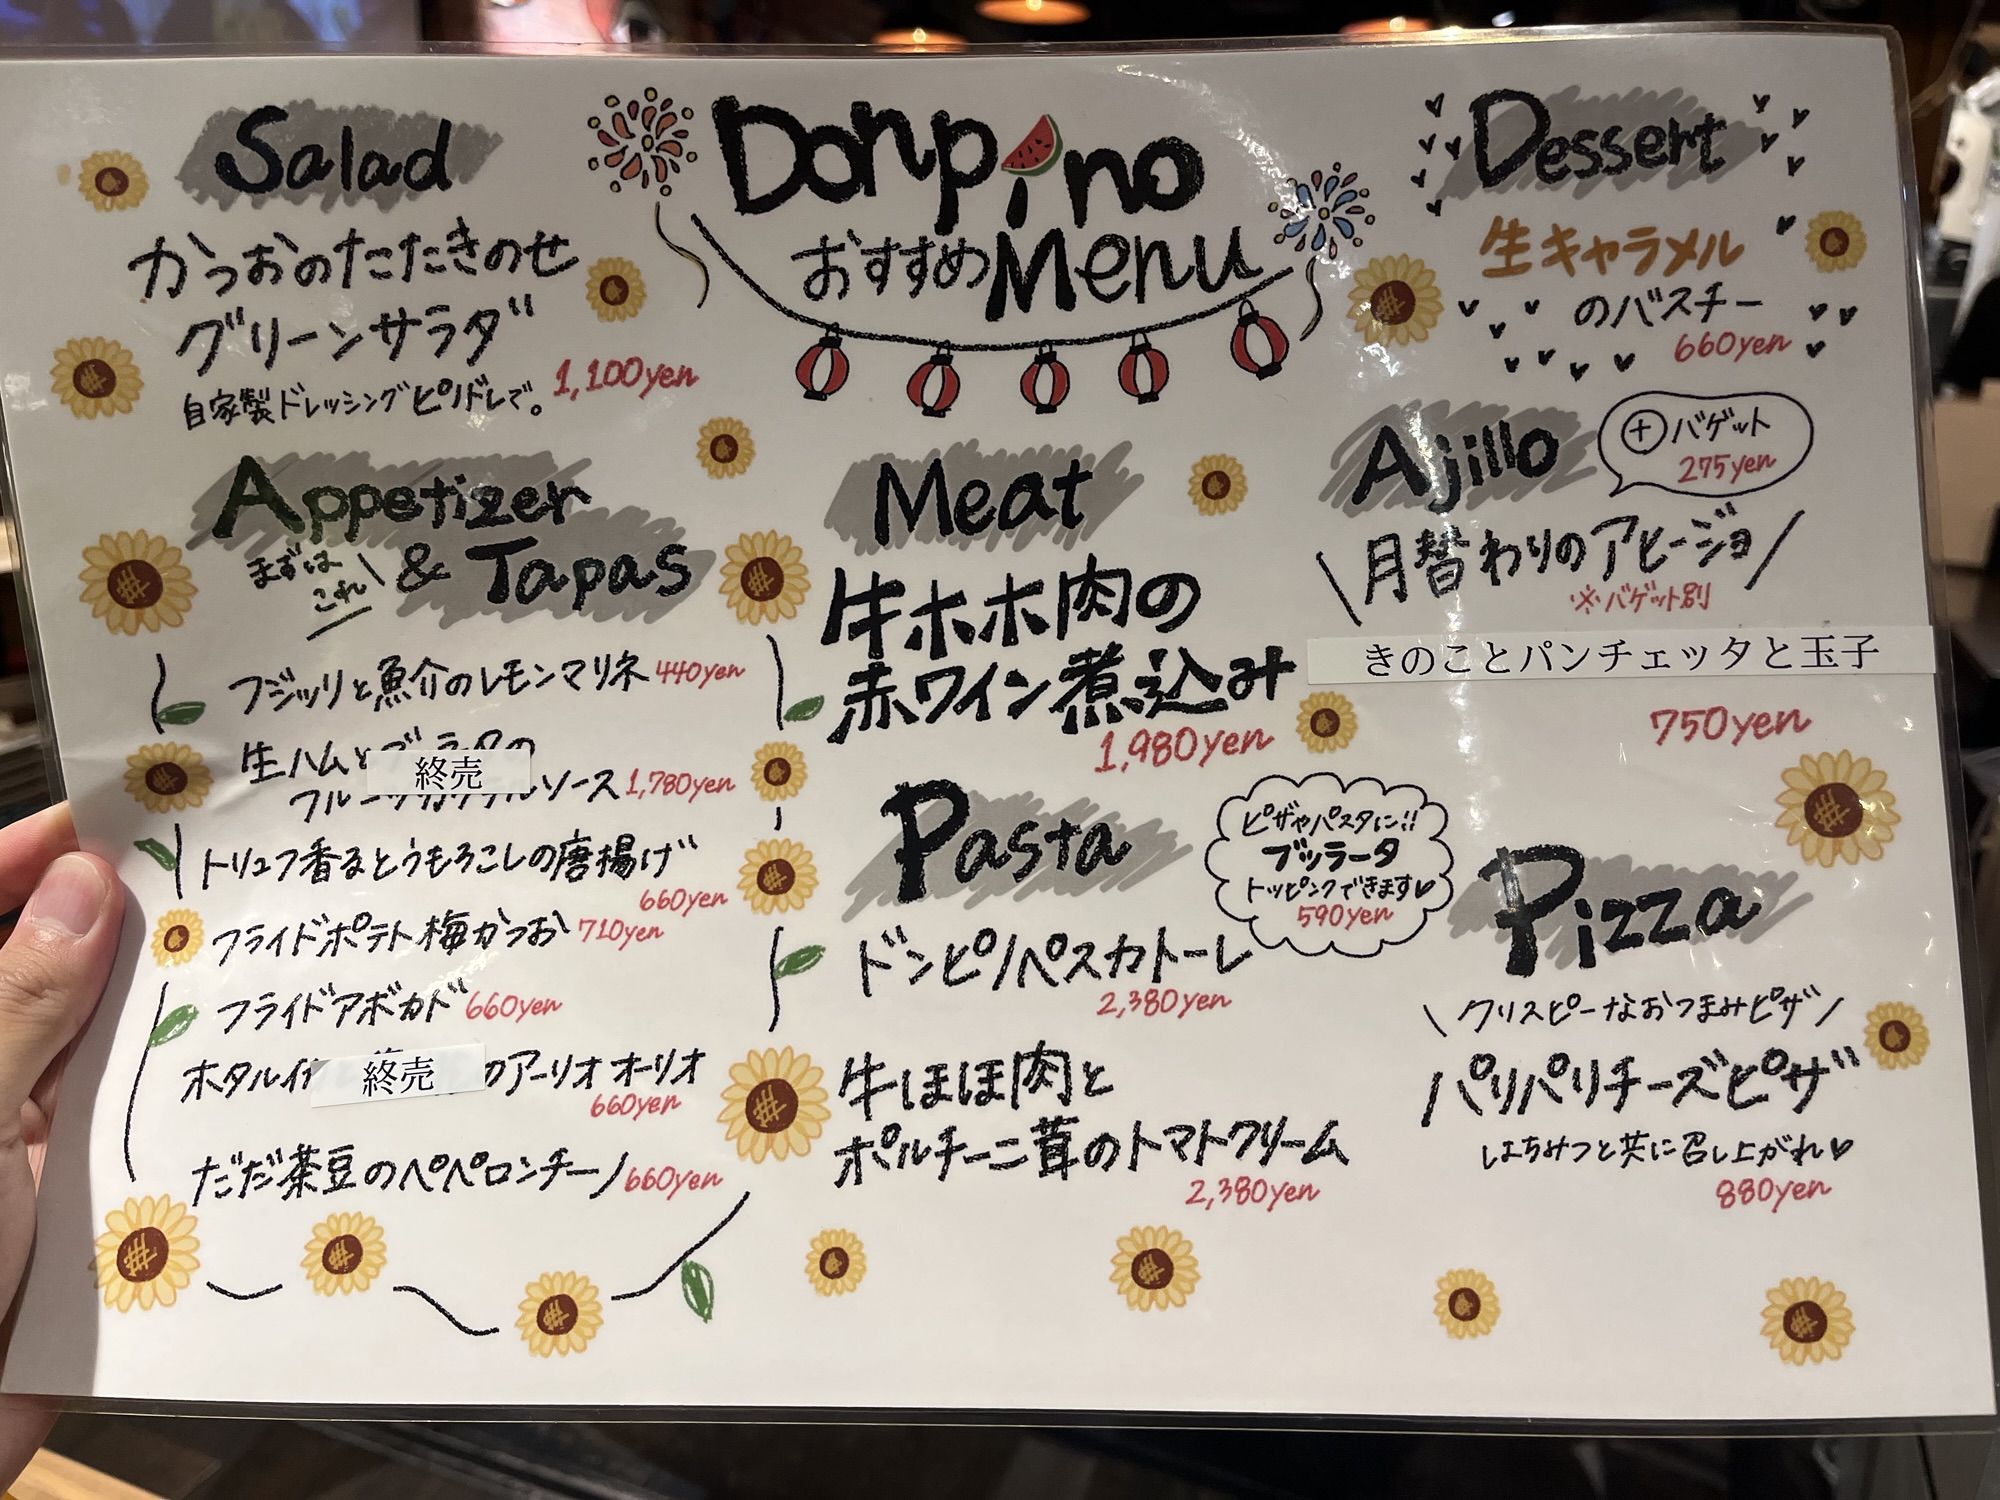 Donpino
おすすめMenu
Salad
かつおのたたきのせ
グリーンサラダ
1,100yen
自家製ドレッシングピノドレで。
Appetizer
& Tapas
まずは
これ
フジッリと魚介のレモンマリネ 440yen
生ハムとブラータの
終売
フルーツカクテルソース 1,780yen
トリュフ香るとうもろこしの唐揚げ
660yen
フライドポテト梅かつお 710yen
フライドアボカド 660yen
ホタルイカ 終売 のアーリオオーリオ
660yen
だだ茶豆のペペロンチーノ 660yen
Meat
牛ホホ肉の
赤ワイン煮込み
1,980yen
Pasta
ピザやパスタに!!
ブッラータ
トッピングできます♡
590yen
ドンピノペスカトーレ
2,380yen
牛ほほ肉と
ポルチーニ茸のトマトクリーム
2,380yen
Dessert
生キャラメル
のバスチー
660yen
Ajillo
⊕バゲット
275yen
\月替わりのアヒージョ/
※バゲット別
きのことパンチェッタと玉子
750yen
Pizza
\クリスピーなおつまみピザ/
パリパリチーズピザ
はちみつと共に召し上がれ♡
880yen